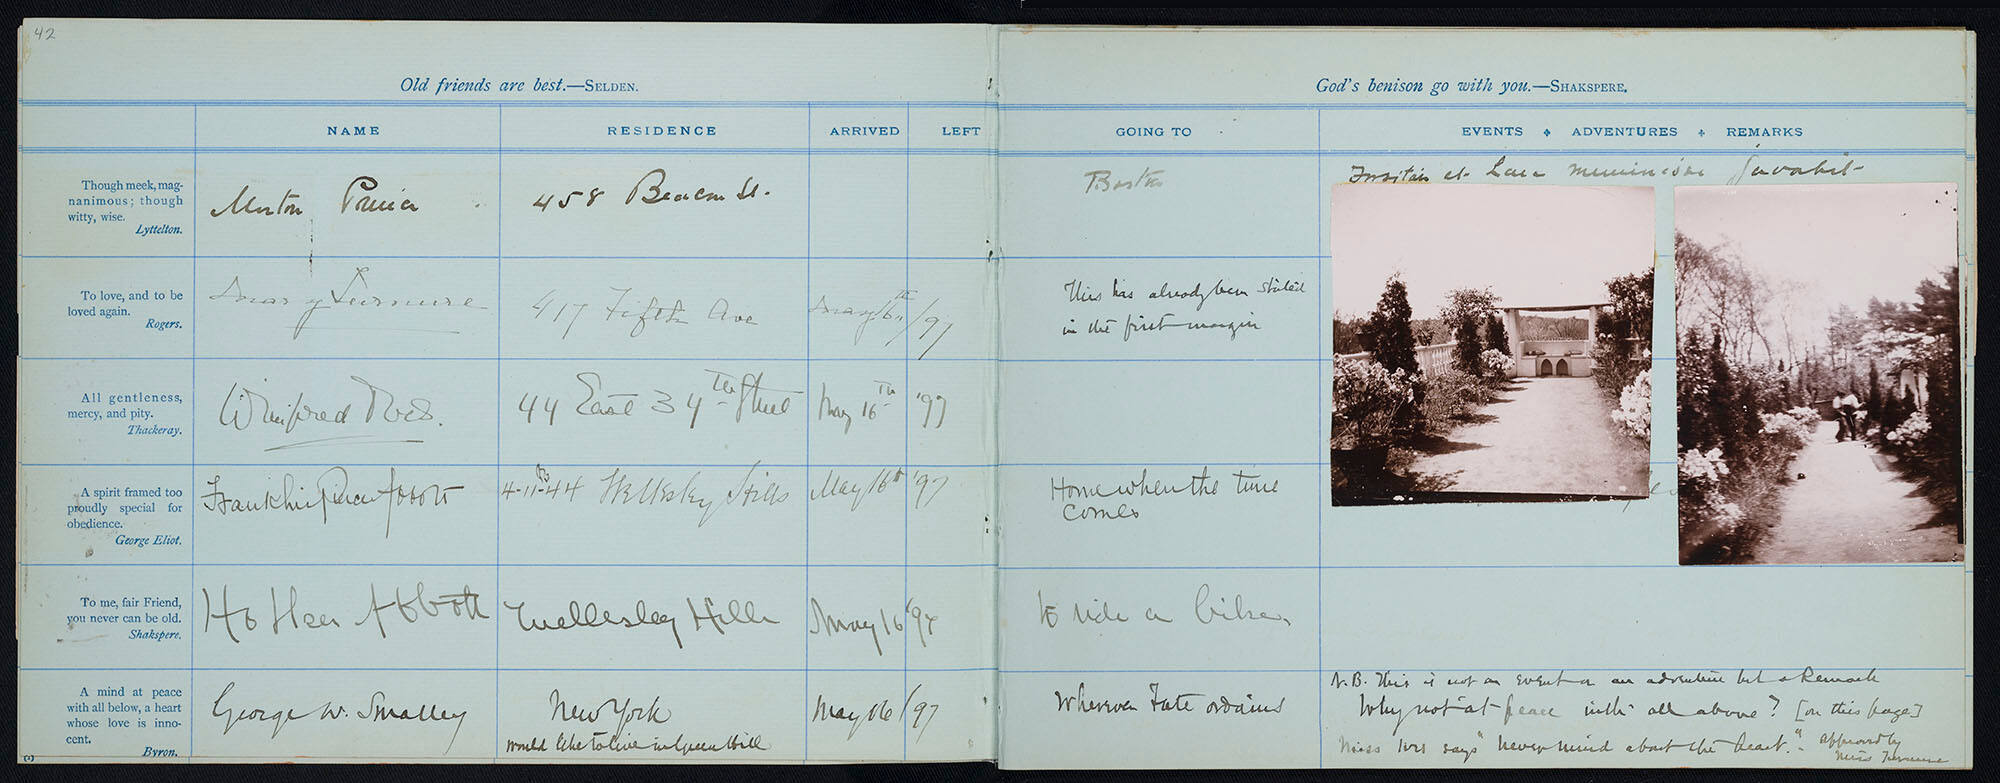 42
Old friends are best.—SELDEN.
God's benison go with you.—SHAKSPERE.
NAME
RESIDENCE
ARRIVED
LEFT
GOING TO
EVENTS ✤ ADVENTURES ✤ REMARKS
Though meek, mag-
nanimous; though
witty, wise.
Lyttelton.
Morton Prince
458 Beacon St.
Boston
Forsitan et haec meminisse juvabit
To love, and to be
loved again.
Rogers.
Mary Furniure
417 Fifth Ave
May 16th/97
This has already been stated
in the first margin
All gentleness,
mercy, and pity.
Thackeray.
Winifred Ives.
44 East 34th Street
May 16th '97
A spirit framed too
proudly special for
obedience.
George Eliot.
Franklin Pierce Abbott
4-11-44 Wellesley Hills
May 16th '97
Home when the time
comes
To me, fair Friend,
you never can be old.
Shakspere.
Abbott
Wellesley Hills
May 16 '97
to ride a bike.
A mind at peace
with all below, a heart
whose love is inno-
cent.
Byron.
George W. Smalley
New York
would like to live in Green Hill
May 16/97
Wherever Fate ordains
N.B. This is not an event or an adventure but a Remark
Why not at peace with all above? [on this page]
Miss Ives says "Never mind about the heart." Approved by
Miss